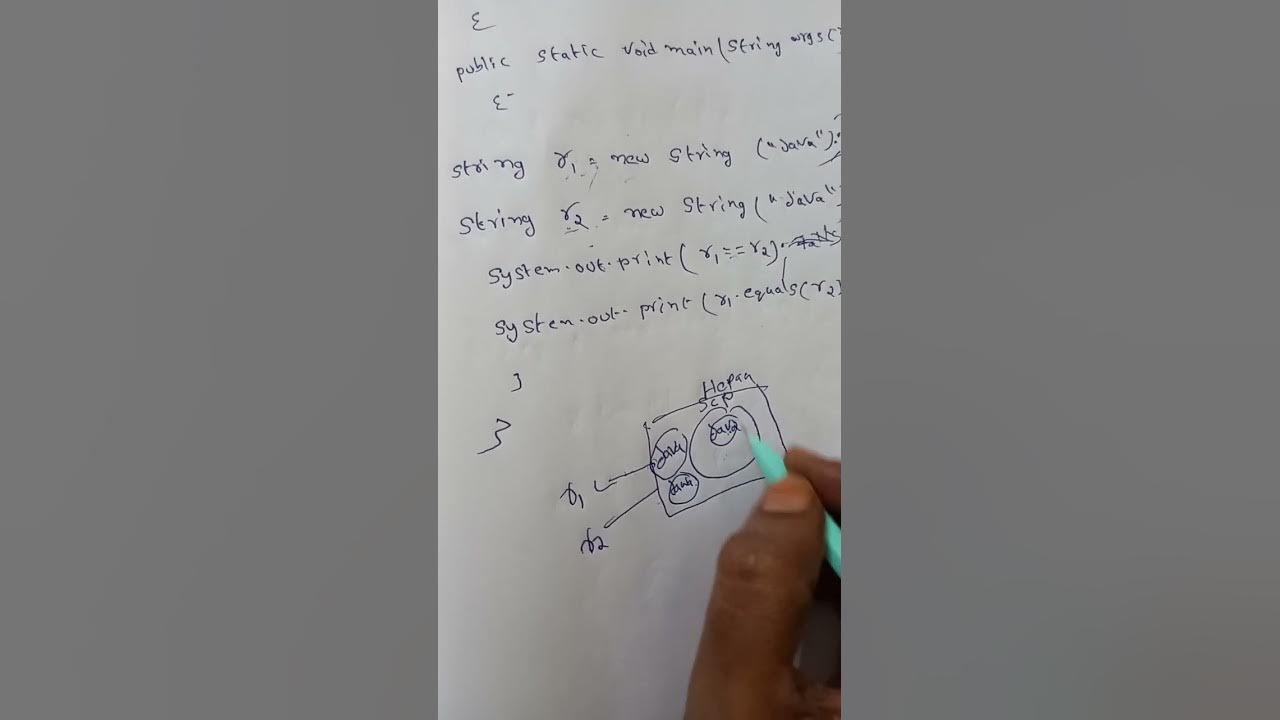 {
public static void main(String args[
{
String r1 = new String ("Java").
String r2 = new String("Java"
System.out.print( r1 == r2).
System.out.print (r1.equals(r2)
}
}
Heap
SCP
Java
Java
Java
r1
r2